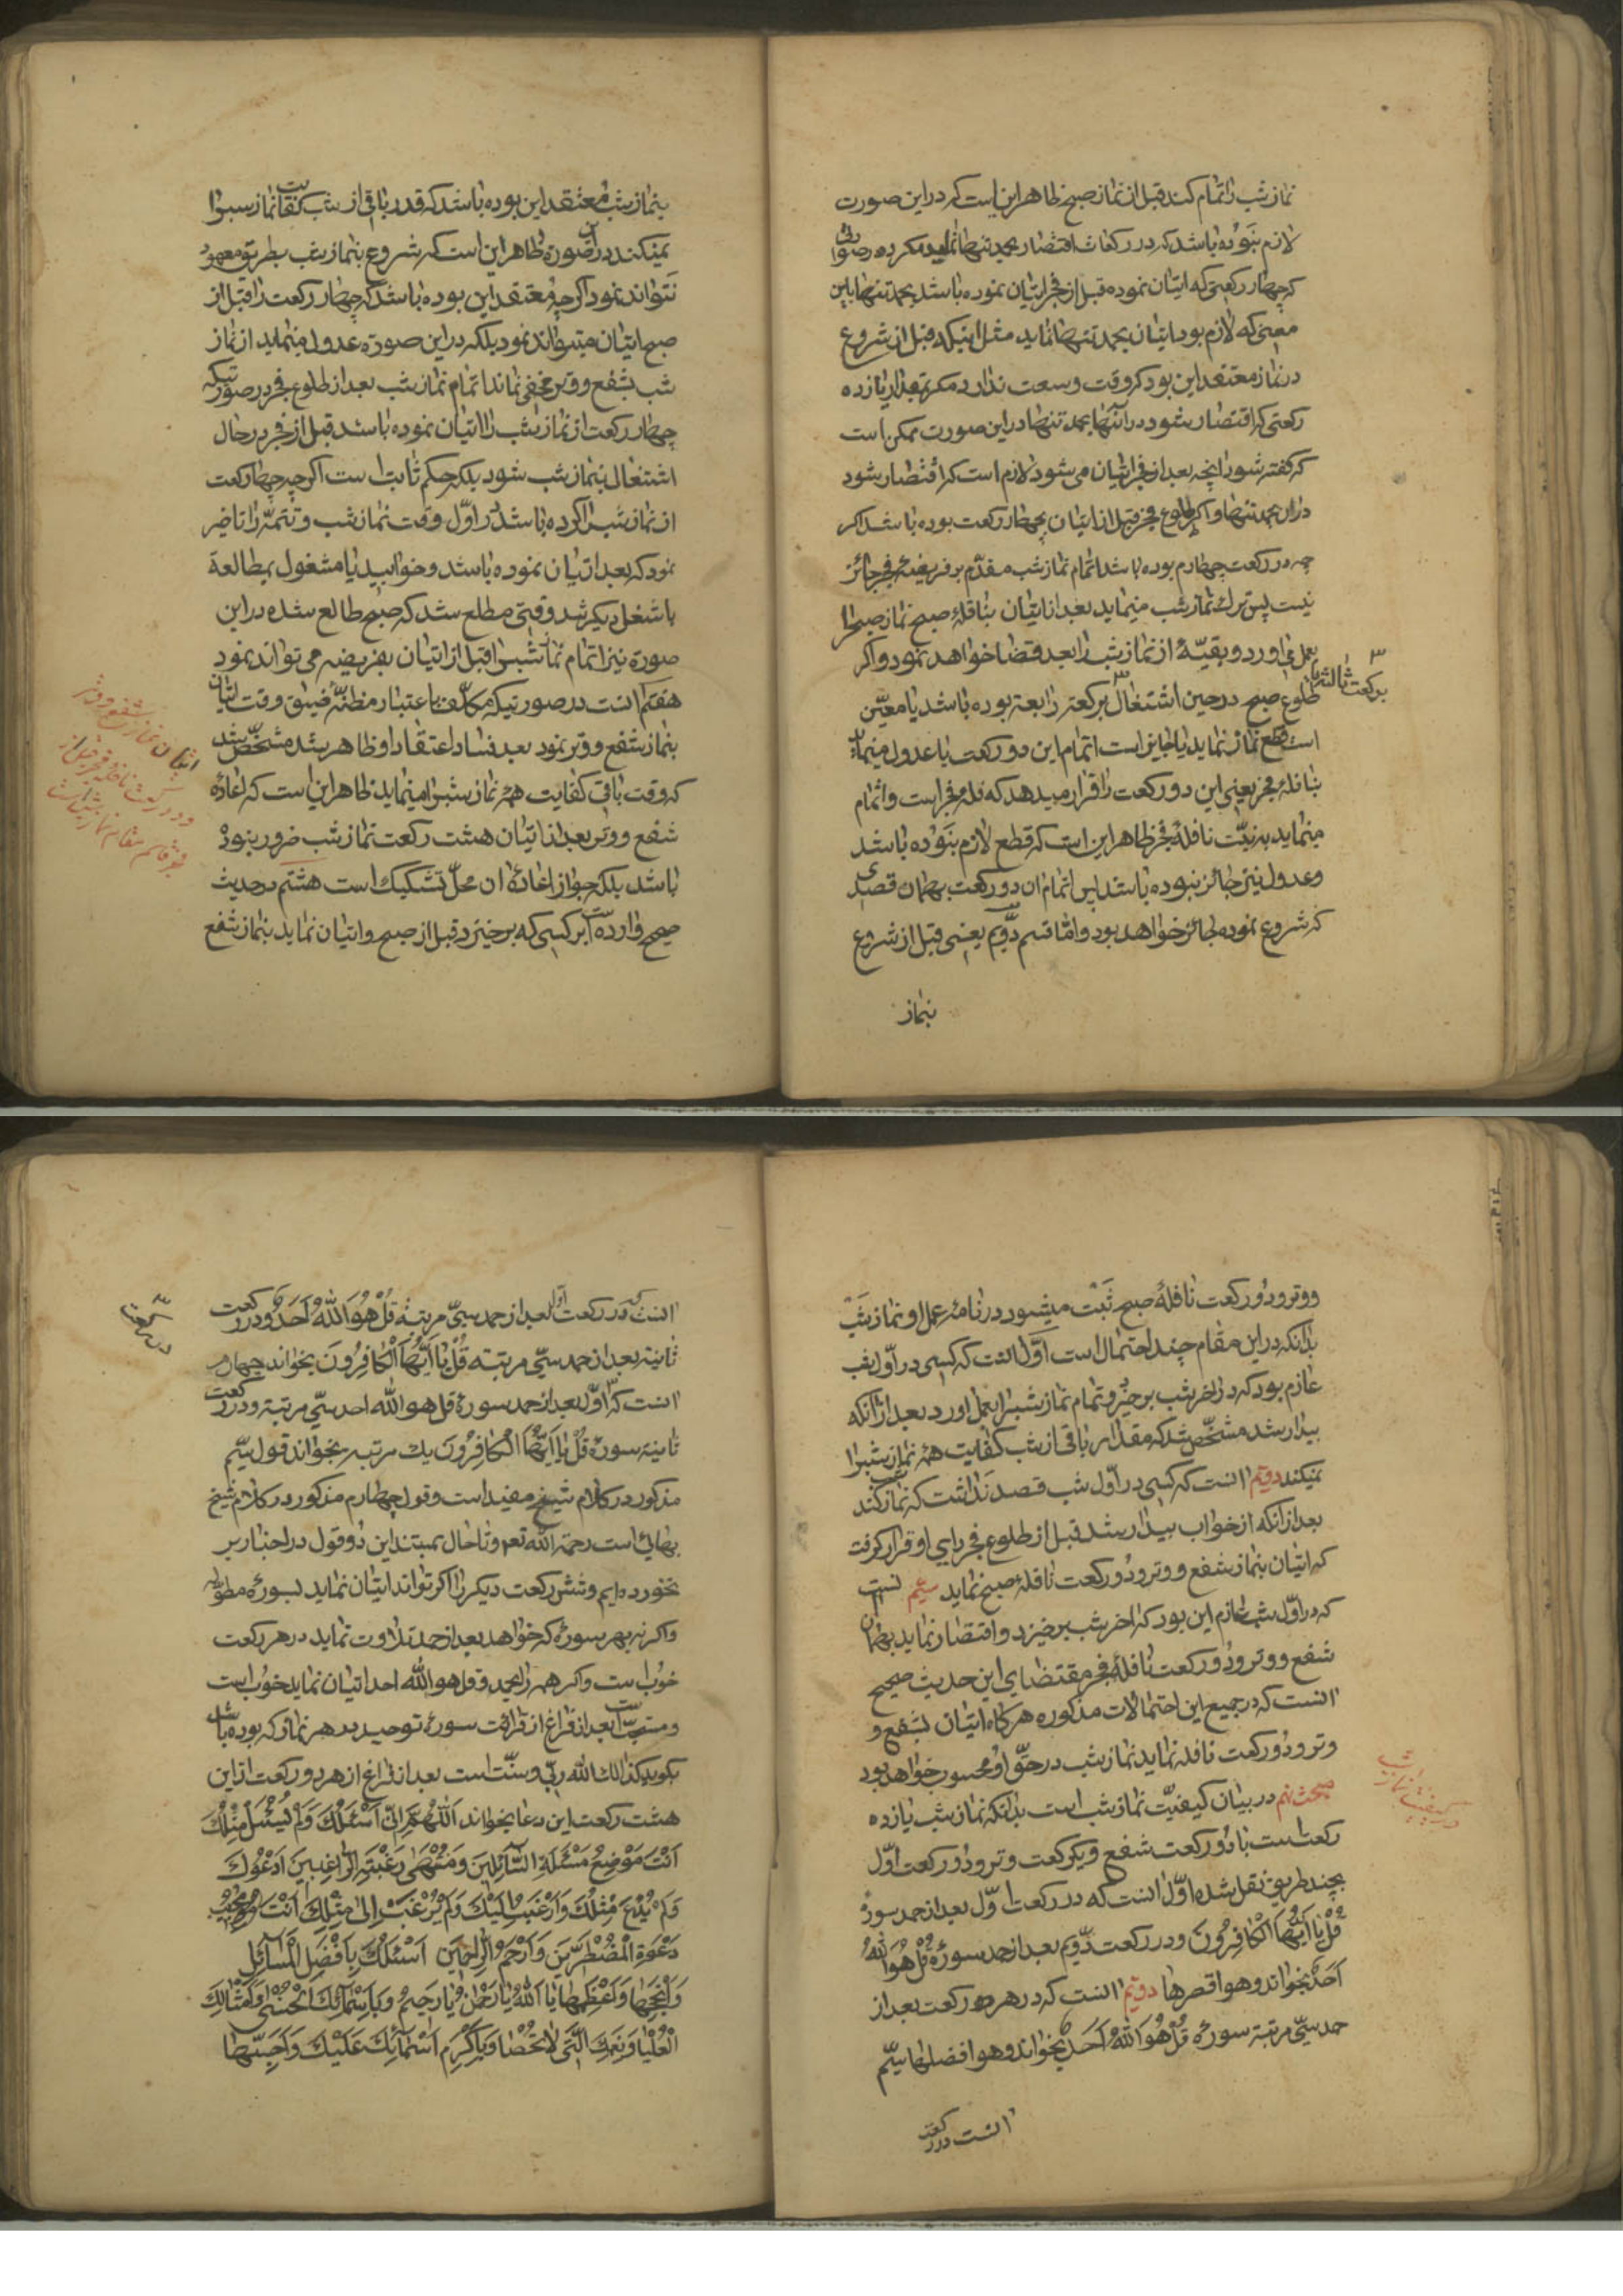 نماز شب را تمام کند قبل از نماز صبح ظاهر این است که در این صورت
لازم نبوده باشد که در رکعات اقتصار بحمد تنها نماید مکر در صورتی
که چهار رکعتی که اتیان نموده قبل از فجر اتیان نموده باشد بحمد تنها باین
معنی که لازم بود اتیان بحمد تنها نماید مثل اینکه قبل از شروع
در نماز معتقد این بود که وقت وسعت ندارد مکر بمقدار یازده
رکعتی که اقتصار شود در آنها بحمد تنها در این صورت ممکن است
که کفته شود انچه بعد از فجر اتیان می شود لازم است که اقتصار شود
در ان بحمد تنها و اکر طلوع فجر قبل از اتیان بچهار رکعت بوده باشد اکر
چه در رکعت چهارم بوده باشد اتمام نماز شب مقدّم بر فریضهٔ فجر جائز
نیست پس ترك نماز شب مینماید بعد از اتیان بنافلهٔ صبح نماز صبح را
بعمل می اورد و بقیّهٔ از نماز شب را بعد قضا خواهد نمود و اکر
طلوع صبح در حین اشتغال برکعت رابعة بوده باشد یا معیّن
برکعت ثالثه یا
است قطع نماز نماید یا جایز است اتمام این دو رکعت یا عدول مینماید
بنافلهٔ فجر یعنی این دو رکعت را قرار میدهد که نافلهٔ فجر است و اتمام
مینماید به نیّت نافلهٔ فجر ظاهر این است که قطع لازم نبوده باشد
و عدول نیز جائز نبوده باشد پس اتمام ان دو رکعت بهمان قصدی
که شروع نموده جائز خواهد بود و امّا قسم دوّیم یعنی قبل از شروع
بنماز
بنماز شب معتقد این بوده باشد که قدر باقی از شب کفایت نماز شب را
نمیکند در آن صورة ظاهر این است که شروع بنماز شب بطریق معهود
نتواند نمود اکر چه معتقد این بوده باشد که چهار رکعت را قبل از
صبح اتیان میتواند نمود بلکه در این صورة عدول مینماید از نماز
شب بشفع و وتر مخفی نماند اتمام نماز شب بعد از طلوع فجر در صورتیکه
چهار رکعت از نماز شب را اتیان نموده باشد قبل از فجر در حال
اشتغال بنماز شب شود بلکه حکم ثابت است اکر چه چهار رکعت
از نماز شب را کرده باشد در اوّل وقت نماز شب و تتمّه را تاخیر
نمود که بعد اتیان نموده باشد و خوابید یا مشغول بمطالعة
یا شغل دیکر شد وقتی مطلع شد که صبح طالع شده در این
صورة نیز اتمام نماز شب را قبل از اتیان بفریضه می تواند نمود
هفتم انست در صورتیکه مکلّف باعتبار مظنّهٔ ضیق وقت اتیان
بنماز شفع و وتر نمود بعد فساد اعتقاد او ظاهر شد مشخّص شد
که وقت باقی کفایت همهٔ نماز شب را مینماید ظاهر این است که اعادهٔ
شفع و وتر بعد از اتیان هشت رکعت نماز شب ضرور نبوده
باشد بلکه جواز اعادهٔ ان محلّ تشکیك است هشتم در حدیث
صحیح وارد است هر کسی که برخیزد قبل از صبح و اتیان نماید بنماز شفع
اتیان نماز شفع و وتر
و دو رکعت نافله فجر قبل از
فجر قائم مقام نماز شب است
و وتر و دو رکعت نافلهٔ صبح ثبت میشود در نامهٔ عمل او نماز شب
بدانکه در این مقام چند احتمال است اوّل انست که کسی در اوّل شب
عازم بود که در اخر شب برخیزد و تمام نماز شب را بعمل اورد بعد از آنکه
بیدار شد مشخّص شد که مقدار باقی از شب کفایت همهٔ نماز شب را
نمیکند دویّم انست که کسی در اوّل شب قصد نداشت که نماز شب کند
بعد از انکه از خواب بیدار شد قبل از طلوع فجر رای او قرار کرفت
که اتیان بنماز شفع و وتر و دو رکعت نافلهٔ صبح نماید سیّم انست
که در اوّل شب عازم این بود که اخر شب برخیزد و اقتصار نماید بهمان
شفع و وتر و دو رکعت نافلهٔ فجر مقتضای این حدیث صحیح
انست که در جمیع این احتمالات مذکوره هرکاه اتیان بشفع و
وتر و دو رکعت نافله نماید نماز شب در حقّ او محسوب خواهد بود
مبحث نهم در بیان کیفیّت نماز شب است بدانکه نماز شب یازده
در کیفیت نماز شب
رکعت است با دو رکعت شفع و یکرکعت وتر و دو رکعت اوّل
بچند طریق نقل شده اوّل انست که در رکعت اوّل بعد از حمد سورهٔ
قُلْ یٰا اَیُّهَا الْکٰافِرُونَ و در رکعت دوّیم بعد از حمد سورهٔ قُلْ هُوَ اللهُ
اَحَدٌ بخواند و هو اقصرها دویّم انست که در هر دو رکعت بعد از
حمد سیّ مرتبة سورهٔ قُلْ هُوَ اللهُ اَحَدٌ بخواند و هو افضلها سیّم
انست در رکعت
انست که در رکعت اول بعد از حمد سیّ مرتبة قُلْ هُوَ اللهُ اَحَدٌ و در رکعت
ثانیة بعد از حمد سیّ مرتبة قُلْ یٰا اَیُّهَا الْکٰافِرُونَ بخواند چهارم
انست که اوّل بعد از حمد سورهٔ قل هو الله احد سیّ مرتبة و در رکعت
ثانیة سورهٔ قُلْ یٰا اَیُّهَا الْکٰافِرُونَ یك مرتبة بخواند قول سیّم
مذکور در کلام شیخ مفید است و قول چهارم مذکور در کلام شیخ
بهائی است رحمة الله تعم و تا حال بمستند این دو قول در اخبار بر
نخورده ایم و شش رکعت دیکر را اکر تواند اتیان نماید بسورهٔ مطوّله
و اکر نه بهر سورهٔ که خواهد بعد از حمد تلاوت نماید در هر رکعت
خوب است و اکر همه را بحمد و قل هو الله احد اتیان نماید خوب است
و مستحبّ است بعد از فراغ از قرائت سورهٔ توحید در هر نماز که بوده باشد
بکوید کذالك الله ربّی و سنّت است بعد از فراغ از هر دو رکعت از این
هشت رکعت این دعا بخواند اَللّٰهُمَّ اِنّی اَسْئَلُكَ وَلَمْ یُسْئَلْ مِثْلُكَ
اَنْتَ مَوْضِعُ مَسْئَلَةِ السّٰآئِلینَ وَمُنْتَهٰی رَغْبَةِ الرّٰاغِبینَ اَدْعُوكَ
وَلَمْ یُدْعَ مِثْلُكَ وَاَرْغَبُ اِلَیْكَ وَلَمْ یُرْغَبْ اِلیٰ مِثْلِكَ اَنْتَ مُجیبُ
دَعْوَةِ الْمُضْطَرّینَ وَاَرْحَمُ الرّٰاحِمینَ اَسْئَلُكَ بِاَفْضَلِ الْمَسٰآئِلِ
وَاَنْجَحِهٰا وَاَعْظَمِهٰا یٰا اَللهُ یٰا رَحْمٰنُ یٰا رَحیمُ وَبِاَسْمٰآئِكَ الْحُسْنیٰ وَاَمْثٰالِكَ
الْعُلْیٰا وَنِعَمِكَ الَّتی لاٰ تُحْصٰا وَبِاَکْرَمِ اَسْمٰآئِكَ عَلَیْكَ وَاَحَبِّهٰا